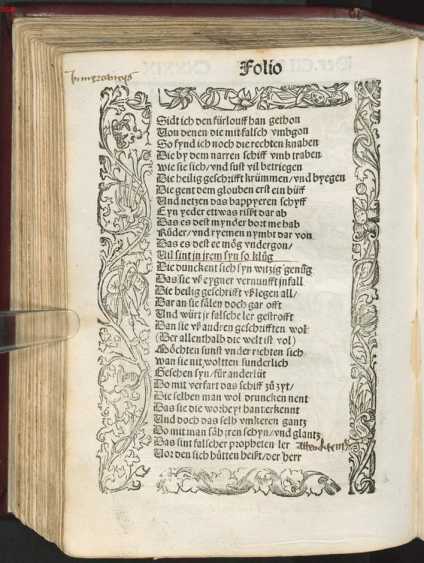 Folio
Sidt ich den fürlouff han gethon
Von denen die mit falsch vmbgon
So synd ich noch die rechten knaben
Die by dem narren schiff vmb traben
wie sie sich/vnd sust vil betriegen
Die heilig geschrifft krümmen/vnd byegen
Die gent dem glouben erst ein büff
Vnd netzen das bappyeren schyff
Eyn yeder ettwas rißt dar ab
Das es dest mynder bort me hab
Růder/vnd ryemen nymbt dar von
Das es dest ee mög vndergon/
Vil sint in irem syn so klůg
Die dunckent sich syn witzig genůg
Das sie vß eygner vernunfft jnfall
Die heilig geschrifft vßlegen all/
Dar an sie fälen doch gar offt
Vnd würt jr falsche ler gestrofft
Dan sie vß andren geschrifften wol
(Der allenthalb die welt ist vol)
Möchten sunst vnder richten sich
wan sie nit woltten sunderlich
Gesehen syn/für ander lüt
Do mit verfart das schiff zů zyt/
Die selben man wol druncken nent
Das sie die worheyt hant erkennt
Vnd doch das selb vmkeren gantz
Do mit man säh jren schyn/vnd glantz
Das sint falscher propheten ler
Vor den sich hütten heißt/der herr